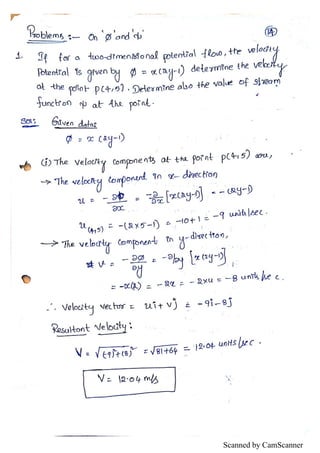 Problems :- On 'ø' and 'ψ'
1. If for a two-dimensional potential flow, the velocity
Potential is given by ø = x(2y-1) determine the velocity
at the point P(4,5). Determine also the value of stream
function ψ at the point.
Sol: Given data:
ø = x (2y-1)
(i) The velocity components at the point P(4,5) are,
→ The velocity component in x- direction
u = - ∂ø/∂x = -∂/∂x [x(2y-1)] = -(2y-1)
u(4,5) = -(2x5-1) = -10+1 = -9 units/sec.
→ The velocity component in y-direction,
v = - ∂ø/∂y = -∂/∂y [x(2y-1)]
= -x(2) = -2x = -2x4 = -8 units/sec.
∴ Velocity vector = ui + vj = -9i-8j
Resultant Velocity :
V = √(-9)²+(8)² = √81+64 = 12.04 units/sec.
V = 12.04 m/s
Scanned by CamScanner